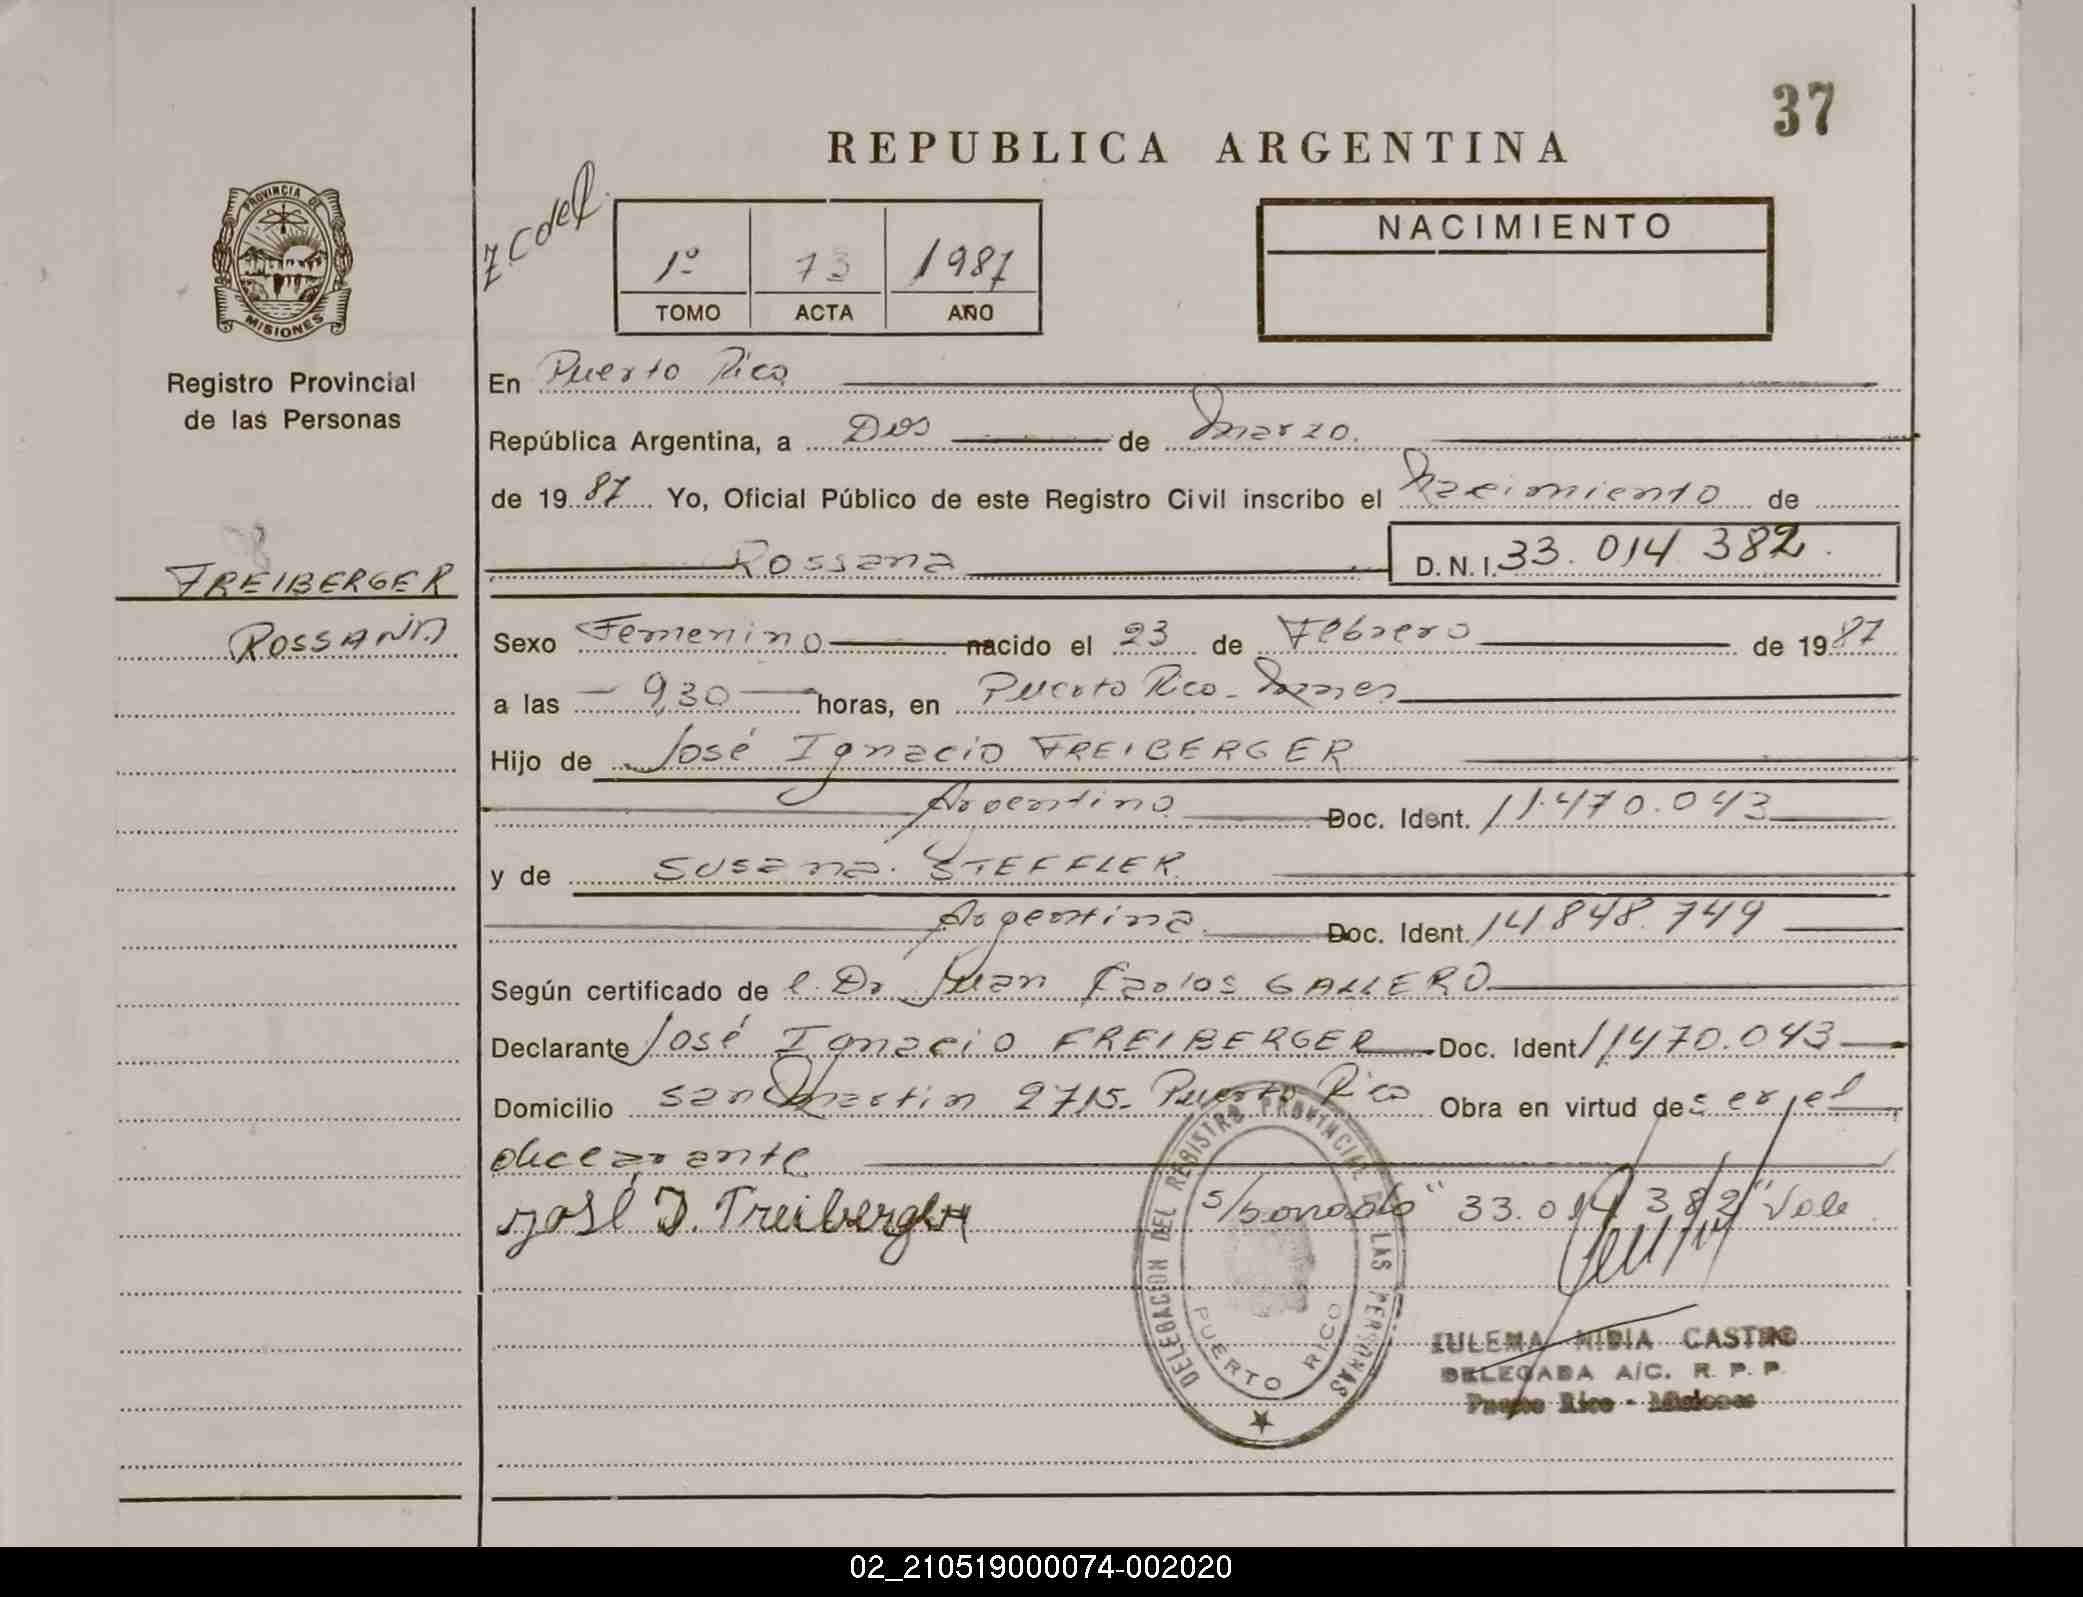 37
REPUBLICA ARGENTINA
PROVINCIA DE
MISIONES
Registro Provincial
de las Personas
FREIBERGER
ROSSANA
1º 73 1987
TOMO ACTA AÑO
NACIMIENTO
En Puerto Rico
República Argentina, a Dos de Marzo.
de 1987 Yo, Oficial Público de este Registro Civil inscribo el Nacimiento de
Rossana D.N.I. 33.014 382.
Sexo Femenino nacido el 23 de Febrero de 1987
a las 9,30 horas, en Puerto Rico-
Hijo de José Ignacio FREIBERGER
Argentino Doc. Ident. 11.470.043
y de Susana STEFFLER
Argentina. Doc. Ident. 14848.749
Según certificado de l Dr Juan Carlos GALLERO
Declarante José Ignacio FREIBERGER Doc. Ident. 11470.043
Domicilio San Martin 2715- Puerto Rico Obra en virtud de ser el
declarante
José I. Freiberger s/borrado "33.014 382" Vale
DELEGACION DEL REGISTRO PROVINCIAL DE LAS PERSONAS
PUERTO RICO
ZULEMA NIDIA CASTRO
DELEGADA A/C. R. P. P.
Puerto Rico - Misiones
02_210519000074-002020